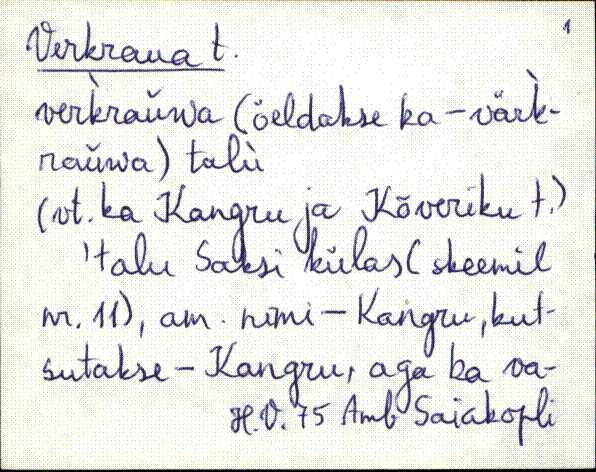 1
Verkraua t.
ver̀kraŭwa (öeldakse ka – vär̀k-
raŭwa) talù
(vt. ka Kangru ja Kõveriku t.)
'talu Saksi külas (skeemil
nr. 11), am. nimi – Kangru, kut-
sutakse – Kangru, aga ka va-
H.V. 75 Amb Saiakopli